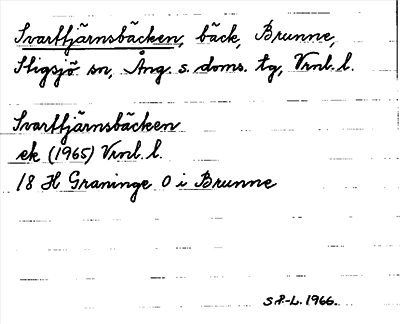 Svarttjärnsbäcken, bäck, Brunne,
Stigsjö sn, Ång. s. doms. tg, Vrnl. l.
Svarttjärnsbäcken
ek (1965) Vrnl. l.
18 H Graninge O i Brunne
S.P-L. 1966.